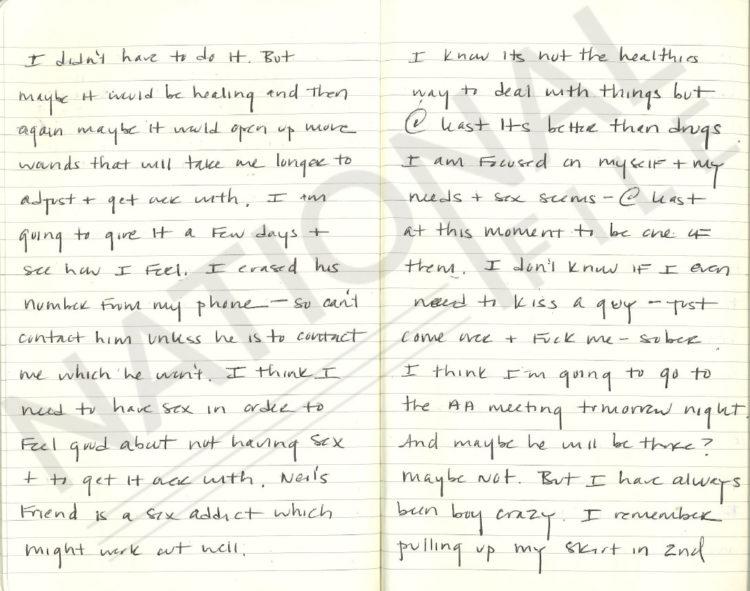 I didn't have to do it. But
maybe it would be healing and then
again maybe it would open up more
wounds that will take me longer to
adjust + get over with. I am
going to give it a few days +
see how I feel. I erased his
number from my phone – so can't
contact him unless he is to contact
me which he won't. I think I
need to have sex in order to
feel good about not having sex
+ to get it over with. Neil's
friend is a sex addict which
might work out well.
I know its not the healthies
way to deal with things but
@ least its better than drugs.
I am focused on myself + my
needs + sex seems – @ least
at this moment to be one of
them. I don't know if I even
need to kiss a guy – just
come over + fuck me – sober.
I think I'm going to go to
the AA meeting tomorrow night.
And maybe he will be there?
maybe not. But I have always
been boy crazy. I remember
pulling up my skirt in 2nd
NATIONAL
FILE